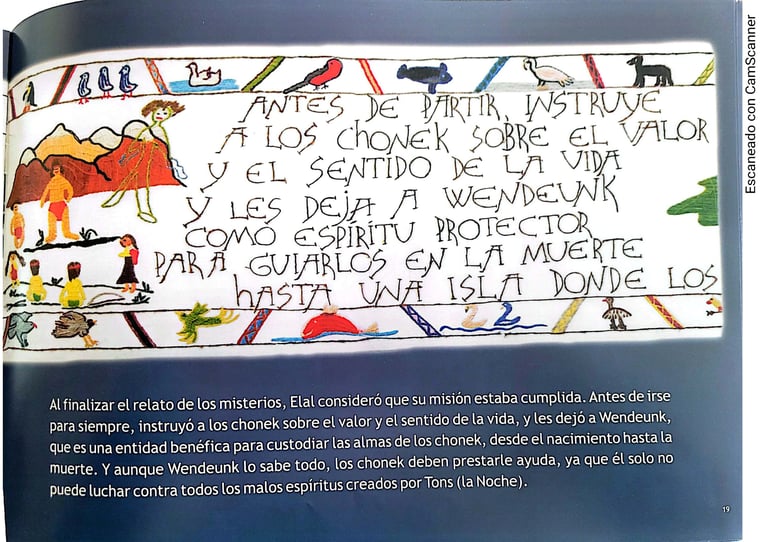 ANTES DE PARTIR, INSTRUYE
A LOS ChONEK SOBRE EL VALOR
Y EL SENTIDO DE LA VIDA
Y LES DEJA A WENDEUNK
COMO ESPÍRITU PROTECTOR
PARA GUIARLOS EN LA MUERTE
hASTA UNA ISLA DONDE LOS
Al finalizar el relato de los misterios, Elal consideró que su misión estaba cumplida. Antes de irse
para siempre, instruyó a los chonek sobre el valor y el sentido de la vida, y les dejó a Wendeunk,
que es una entidad benéfica para custodiar las almas de los chonek, desde el nacimiento hasta la
muerte. Y aunque Wendeunk lo sabe todo, los chonek deben prestarle ayuda, ya que él solo no
puede luchar contra todos los malos espíritus creados por Tons (la Noche).
19
Escaneado con CamScanner